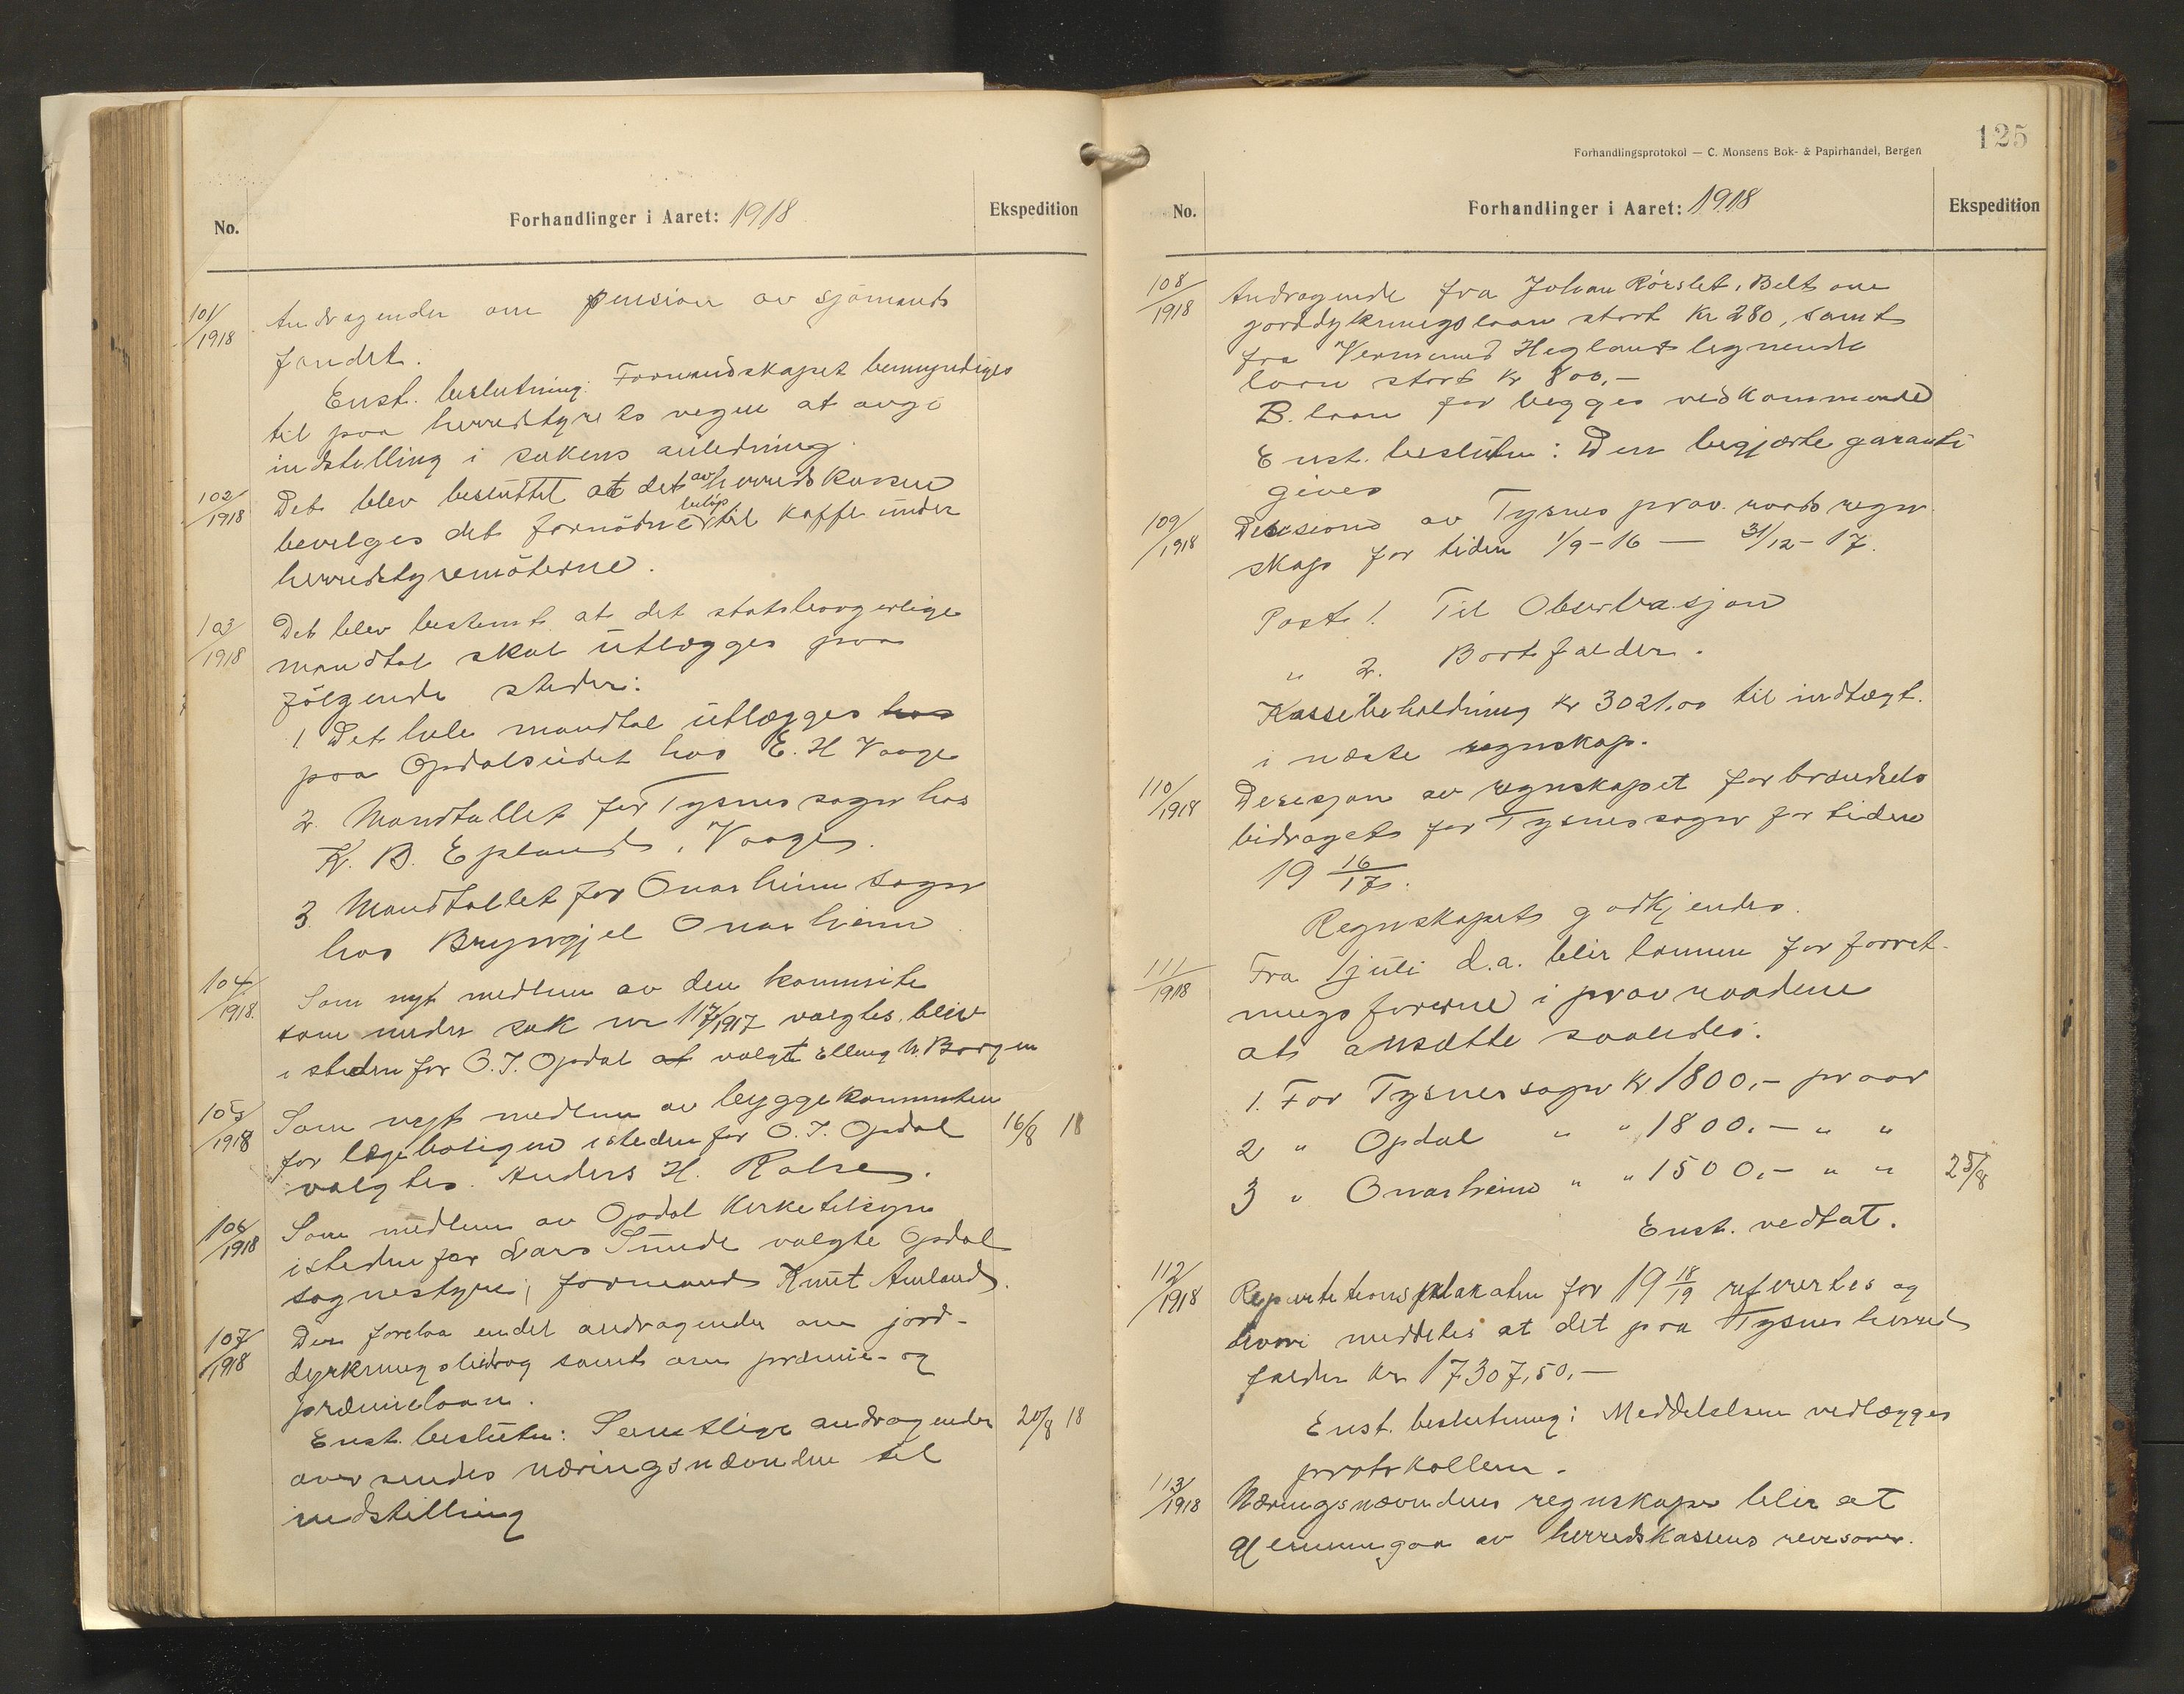 No.
Forhandlinger i Aaret: 1918
Ekspedition
101/1918 Andragender om pension av sjömands
fondet.
Enst. beslutning: Formandskapet bemyndiges
til paa herredstyrets vegne at avgi
indstilling i sakens anledning.
102/1918 Det blev besluttet at det av herredskassen
bevilges det fornödne beløp til kaffe under
herredstyremöterne.
103/1918 Det blev bestemt at det statsborgerlige
mandtal skal utlægges paa
fölgende steder:
1 Det hele mandtal utlægges hos
paa Opdalseidet hos E. H Vaage
2. Mandtallet for Tysnes sogn hos
K. B. Epland, Vaage.
3. Mandtallet for Onarheim sogn
hos Bryngjel Onarheim
104/1918. Som nyt medlem av den komite
som under sak nr 117/1917 valgtes, blev
isteden for O. J. Opdal at valgt Elling N. Borgen
105/1918 Som nyt medlem av byggekomiteen
for lægeboligen isteden for O. J. Opdal 16/8 18
valgtes Anders H. Kalve.
106/1918 Som medlem av Opdal Kirketilsyn
isteden for Lars Sunde valgte Opdal
sognestyre; formand Knut Amland.
107/1918 Der forelaa endel andragender om jord-
dyrkningsbidrag samt om præmie- og
præmielaan.
Enst. beslutn: Samtlige andragender 20/8 18
oversendes næringsnævnden til
indstilling
125
Forhandlingsprotokol — C. Monsens Bok- & Papirhandel, Bergen
No.
Forhandlinger i Aaret: 1918
Ekspedition
108/1918 Andragende fra Johan Rörslet, Belt om
jorddykningslaan stort Kr 280, samt
fra Vermund Hegland lignende
laan stort kr 800,-
B. laan for begges vedkommende
Enst. beslutn: Den begjærte garanti
gives
109/1918 Decisions av Tysnes prov. raads regn
skap for tiden 1/9-16 — 31/12-17.
Post 1. Til Observasjon
" 2. Bortfalder.
Kassebeholdning kr 3021.00 til indtægt.
i næste regnskap.
110/1918 Decisjon av regnskapet for brændsels
bidraget for Tysnes sogn for tiden
19 16/17.
Regnskapet godkjendes.
111/1918 Fra 1 juli d.a. blir lönnen for forret-
ningsförerne i provraadene
at ansætte saaledes:
1. For Tysnes sogn kr 1800,- pr aar
2 " Opdal " " 1800.- " "
3 " Onarheim " " 1500,- " " 25/8
Enst. vedtat.
112/1918 Repartitionsplakaten for 19 18/19 refereres og
hvori meddeles at det paa Tysnes herred
falder kr 17307,50,-
Enst. beslutning: Meddelelsen vedlægges
protokollen.
113/1918 Næringsnævndens regnskaper blir at
gjennemgaa av herredskassens revisorer.